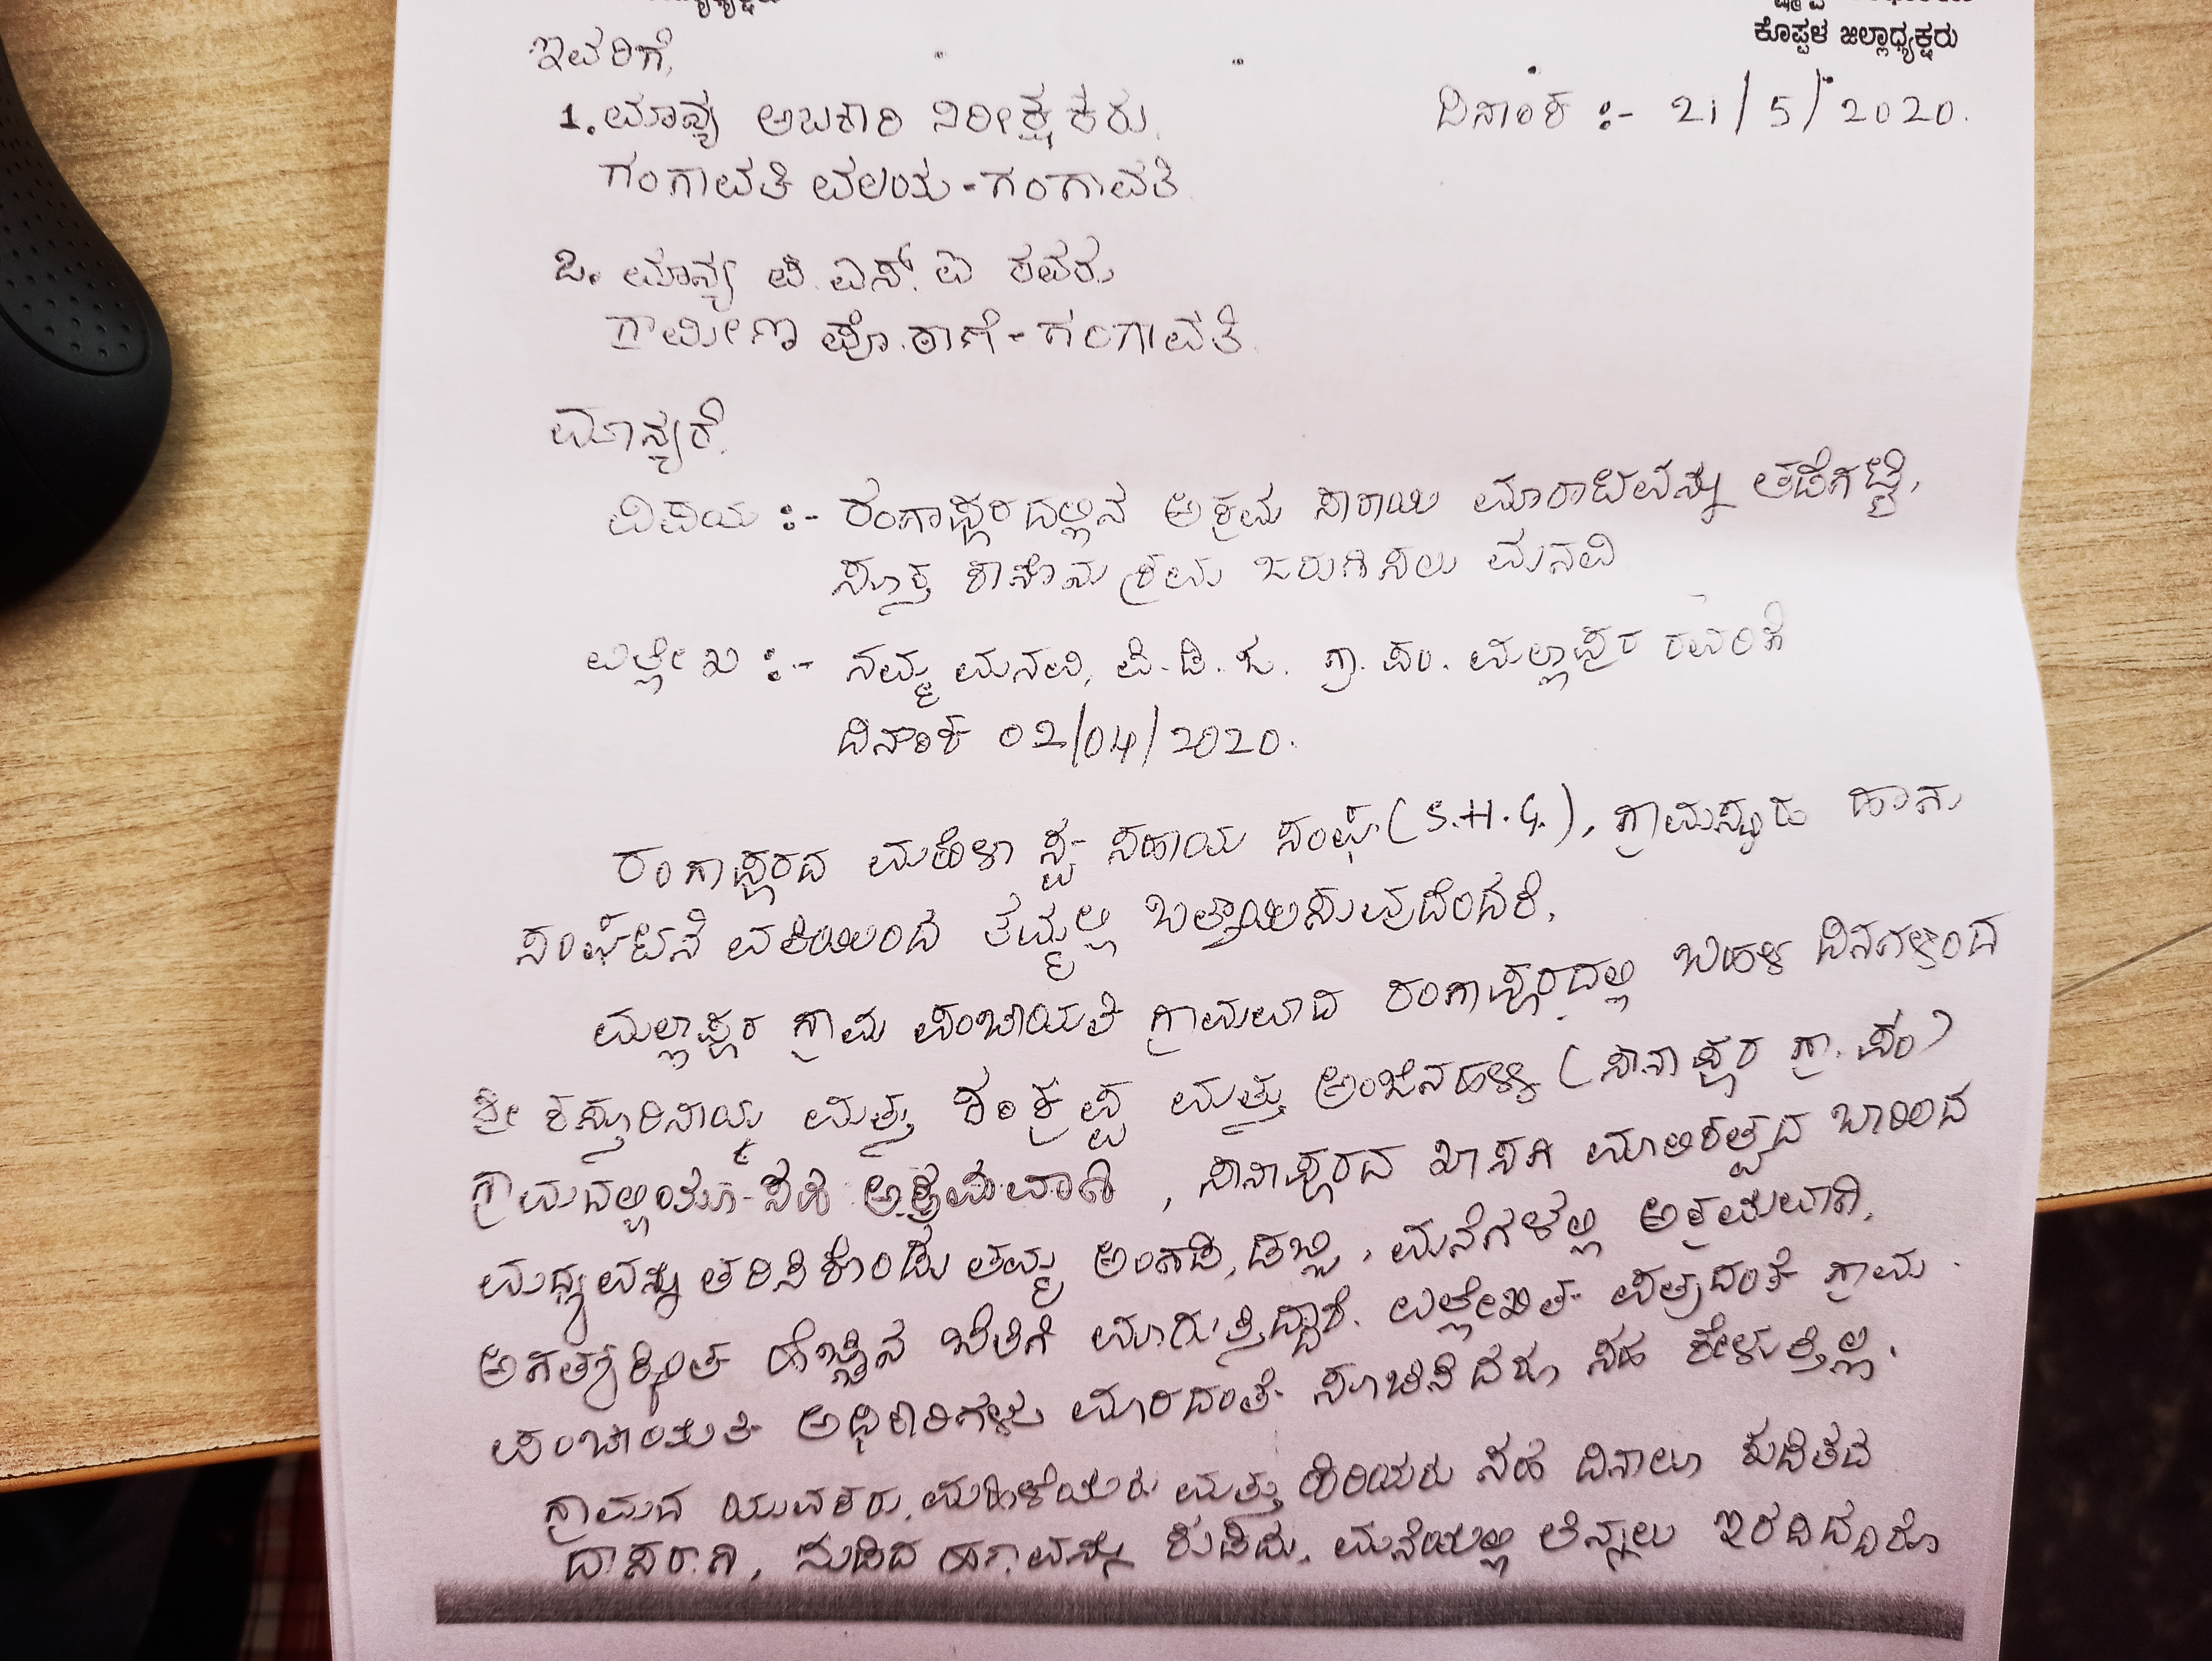 ಕೊಪ್ಪಳ ಜಿಲ್ಲಾಧ್ಯಕ್ಷರು
ಇವರಿಗೆ,
1. ಮಾನ್ಯ ಅಬಕಾರಿ ನಿರೀಕ್ಷಕರು. ದಿನಾಂಕ :- 21/5/2020.
ಗಂಗಾವತಿ ವಲಯ - ಗಂಗಾವತಿ
2. ಮಾನ್ಯ ಪಿ.ಎಸ್.ಐ ರವರು
ಗ್ರಾಮೀಣ ಪೊ.ಠಾಣೆ - ಗಂಗಾವತಿ.
ಮಾನ್ಯರೆ,
ವಿಷಯ :- ರಂಗಾಪೂರದಲ್ಲಿನ ಅಕ್ರಮ ಸಾರಾಯಿ ಮಾರಾಟವನ್ನು ತಡೆಗಟ್ಟಿ,
ಸೂಕ್ತ ಕಾನೂನು ಕ್ರಮ ಜರುಗಿಸಲು ಮನವಿ
ಉಲ್ಲೇಖ :- ನಮ್ಮ ಮನವಿ, ಪಿ.ಡಿ.ಓ. ಗ್ರಾ.ಪಂ. ಮಲ್ಲಾಪುರ ರವರಿಗೆ
ದಿನಾಂಕ 02/04/2020.
ರಂಗಾಪೂರದ ಮಹಿಳಾ ಸ್ವ-ಸಹಾಯ ಸಂಘ (S.H.G.), ಗ್ರಾಮಸ್ಥರು ಹಾಗು
ಸಂಘಟನೆ ವತಿಯಿಂದ ತಮ್ಮಲ್ಲಿ ಒತ್ತಾಯಿಸುವುದೆಂದರೆ,
ಮಲ್ಲಾಪೂರ ಗ್ರಾಮ ಪಂಚಾಯತಿ ಗ್ರಾಮವಾದ ರಂಗಾಪೂರದಲ್ಲಿ ಬಹಳ ದಿನಗಳಿಂದ
ಶ್ರೀ ಕಸ್ತೂರಿನಾಯ್ಕ ಮತ್ತು ಶಂಕ್ರಪ್ಪ ಮತ್ತು ಅಂಜಿನಹಳ್ಳಿ (ಸಾನಾಪೂರ ಗ್ರಾ.ಪಂ)
ಗ್ರಾಮದಲ್ಲಿಯೂ-ಸಹ ಅಕ್ರಮವಾಗಿ, ಸಾನಾಪೂರದ ಖಾಸಗಿ ಮಾಲಿಕತ್ವದ ಬಾರಿಂದ
ಮಧ್ಯವನ್ನು ತರಿಸಿಕೊಂಡು ತಮ್ಮ ಅಂಗಡಿ, ಡಬ್ಬಿ, ಮನೆಗಳಲ್ಲಿ ಅಕ್ರಮವಾಗಿ,
ಅಗತ್ಯಕ್ಕಿಂತ ಹೆಚ್ಚಿನ ಬೆಲೆಗೆ ಮಾರುತ್ತಿದ್ದಾರೆ. ಉಲ್ಲೇಖಿತ ಪತ್ರದಂತೆ ಗ್ರಾಮ
ಪಂಚಾಯತಿ ಅಧಿಕಾರಿಗಳು ಮಾರದಂತೆ ಸೂಚಿಸಿದರೂ ಸಹ ಕೇಳುತ್ತಿಲ್ಲ.
ಗ್ರಾಮದ ಯುವಕರು, ಮಹಿಳೆಯರು ಮತ್ತು ಹಿರಿಯರು ಸಹ ದಿನಾಲೂ ಕುಡಿತದ
ದಾಸರಾಗಿ, ದುಡಿದ ಹಣವನ್ನು ಕುಡಿದು, ಮನೆಯಲ್ಲಿ ತಿನ್ನಲು ಇರದಿದ್ದರೂ